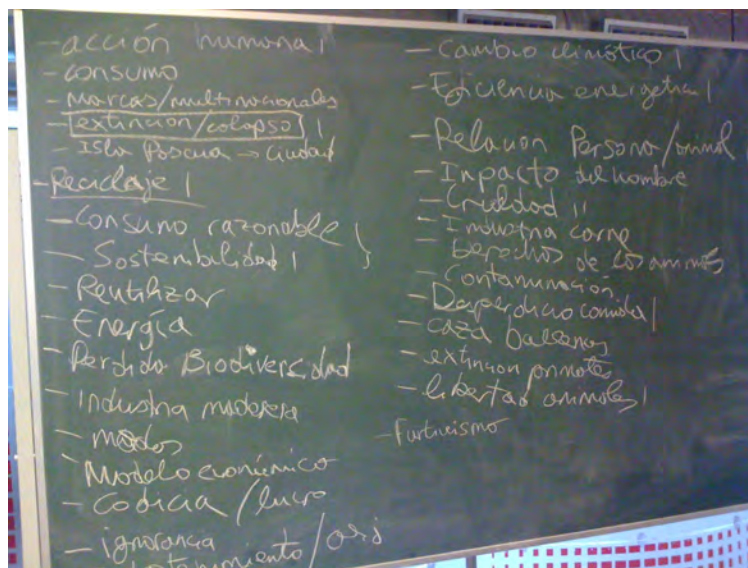 - acción humana |
- consumo
- marcas/multinacionales
- extinción/colapso |
- Isla Pascua → ciudad
- Reciclaje |
- Consumo razonable |
- Sostenibilidad |
- Reutilizar
- Energía
- Perdida Biodiversidad
- Industria maderera
- modos
- Modelo económico
- Codicia / lucro
- ignorancia
- Cambio climático |
- Eficiencia energetica |
- Relacion Persona/animal
- Inpacto del hombre
- Crueldad ||
- Industria carne
- Derechos de los animales
- Contaminación
- Desperdicio comida |
- caza ballenas
- extincion primates
- libertad animales |
- Furtivismo